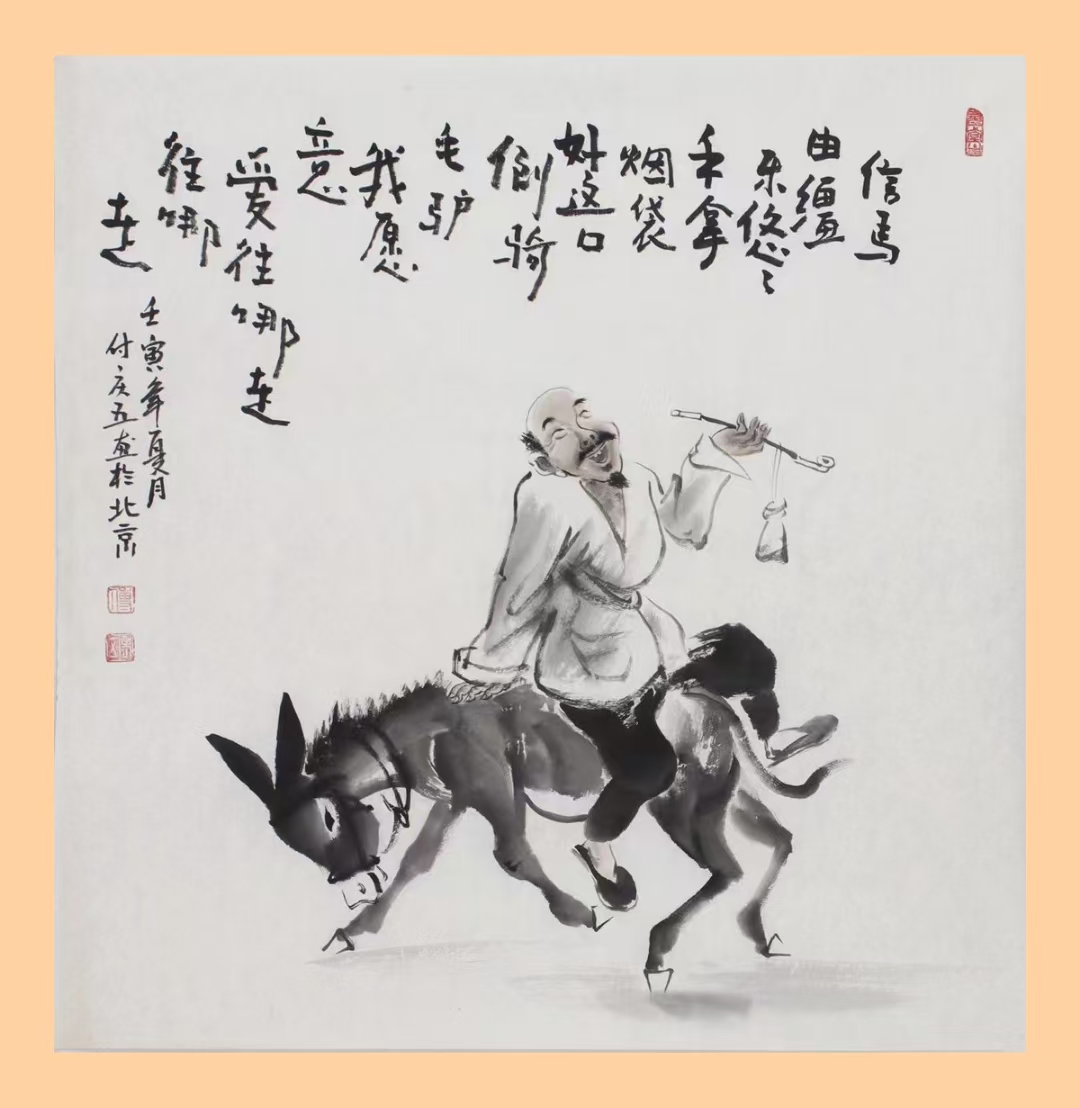 信马
由缰
乐悠々
手拿
烟袋
好这口
倒骑
毛驴
我愿
意
爱往哪走
往哪
走
壬寅年夏月
付庆五画於北京